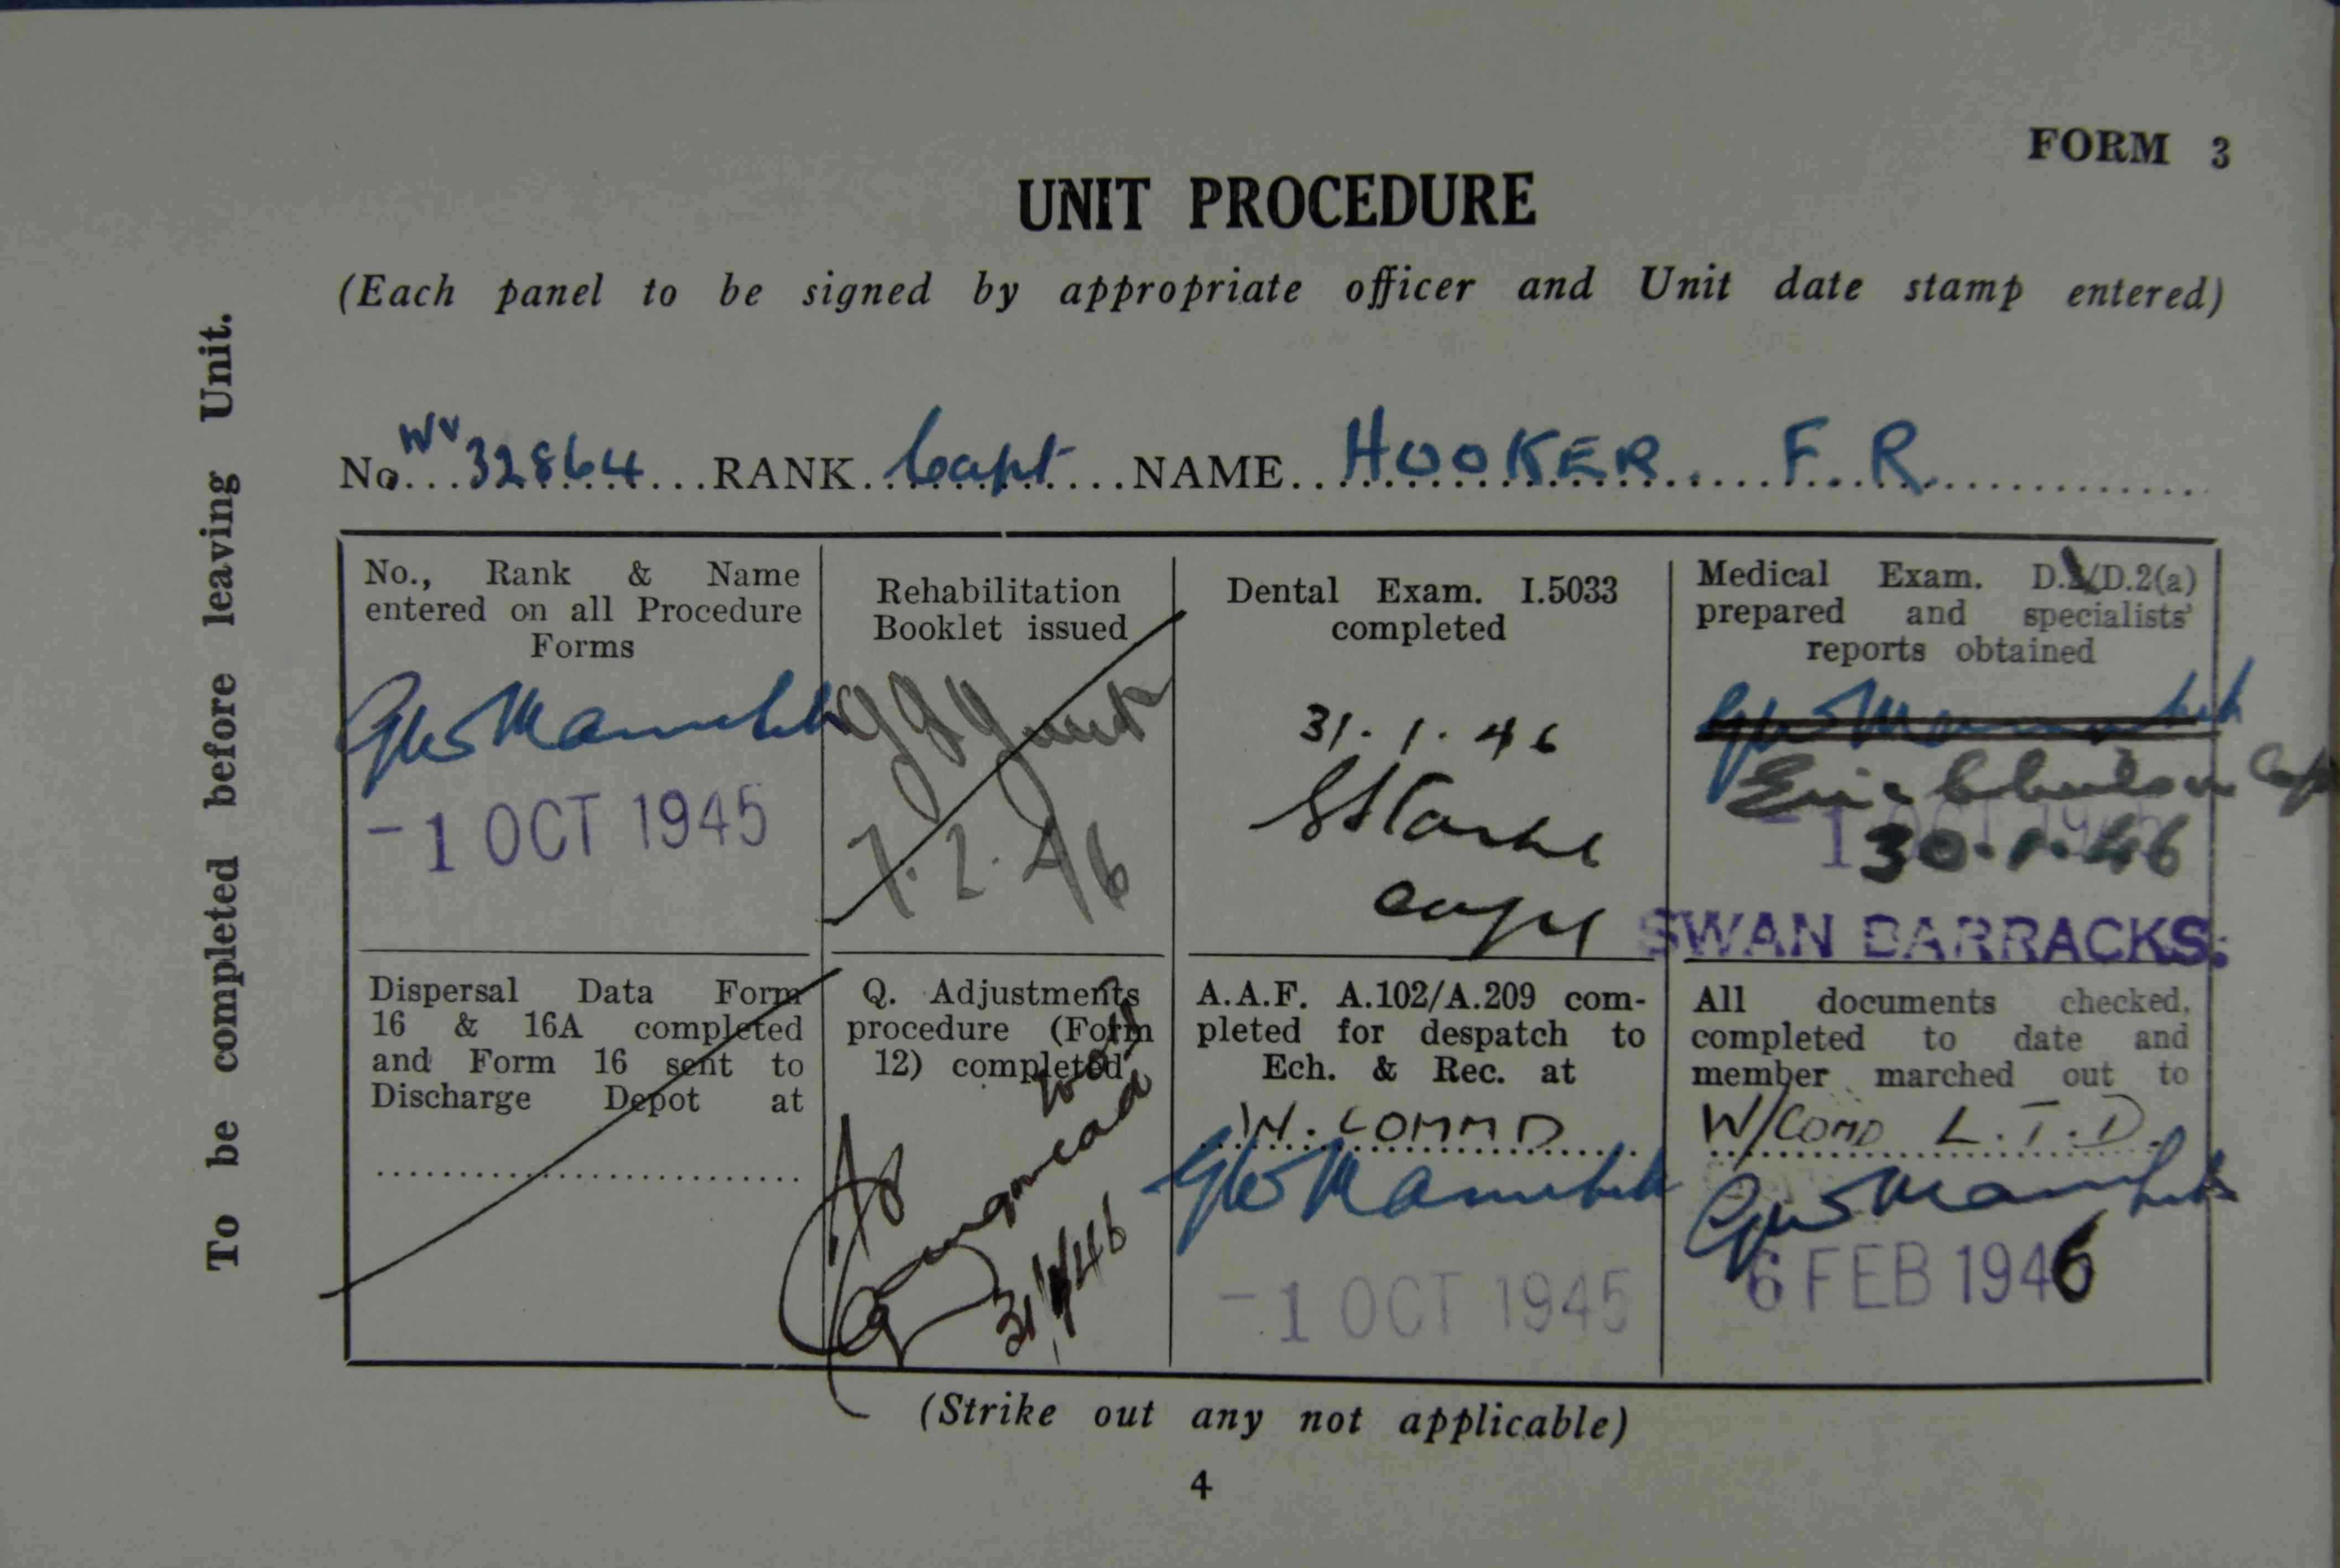 FORM 3
UNIT PROCEDURE
(Each panel to be signed by appropriate officer and Unit date stamp entered)
To be completed before leaving Unit.
No... 32864 ...RANK. Capt ....NAME.. HOOKER F. R.
No., Rank & Name
entered on all Procedure
Forms
-1 OCT 1945
Rehabilitation
Booklet issued
7.2.46
Dental Exam. I.5033
completed
31.1.46
Capt
Medical Exam. D.2(a)
prepared and specialists'
reports obtained
30.1.46
SWAN BARRACKS.
Dispersal Data Form
16 & 16A completed
and Form 16 sent to
Discharge Depot at
Q. Adjustments
procedure (Form
12) completed
31/1/46
A.A.F. A.102/A.209 com-
pleted for despatch to
Ech. & Rec. at
W. COMMD
-1 OCT 1945
All documents checked,
completed to date and
member marched out to
W/COMD L.T.D.
6 FEB 1946
(Strike out any not applicable)
4